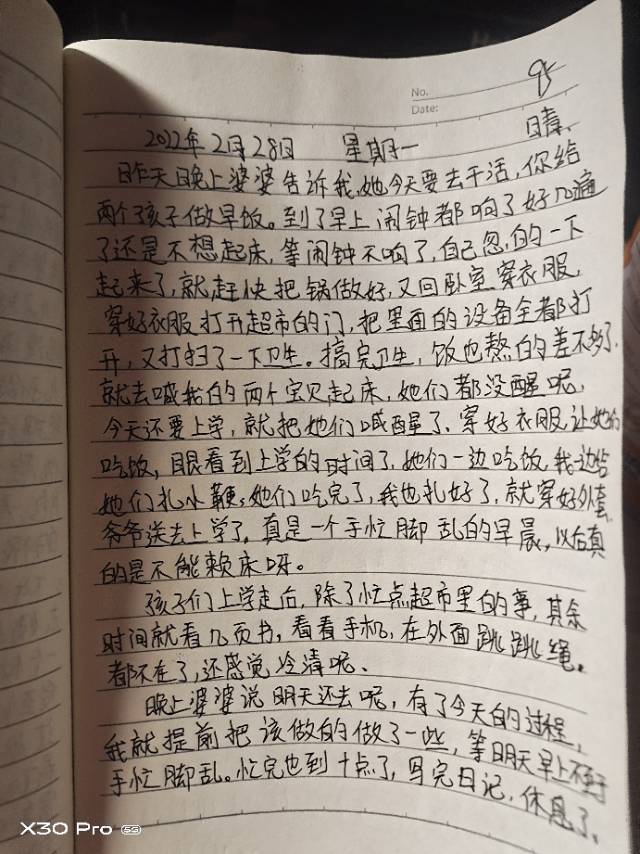 No. 95
Date:
2022年2月28日 星期一 晴、
昨天晚上婆婆告诉我,她今天要去干活,你给
两个孩子做早饭。到了早上闹钟都响了好几遍
了还是不想起床,等闹钟不响了,自己忽的一下
起来了,就赶快把锅做好,又回卧室穿衣服,
穿好衣服打开超市的门,把里面的设备全都打
开,又打扫了一下卫生。搞完卫生,饭也熬的差不多了,
就去喊我的两个宝贝起床,她们都没醒呢,
今天还要上学,就把她们喊醒了、穿好衣服,让她们
吃饭,眼看到上学的时间了,她们一边吃饭,我一边给
她们扎小鞭,她们吃完了,我也扎好了,就穿好外套,
爷爷送去上学了,真是一个手忙脚乱的早晨,以后真
的是不能赖床呀。
孩子们上学走后,除了忙点超市里的事,其余
时间就看几页书,看看手机,在外面跳跳绳。
都不在了,还感觉冷清呢、
晚上婆婆说明天还去呢,有了今天的过程,
我就提前把该做的做了一些,等明天早上不至于
手忙脚乱。忙完也到十点了,写完日记,休息了、
X30 Pro 5G